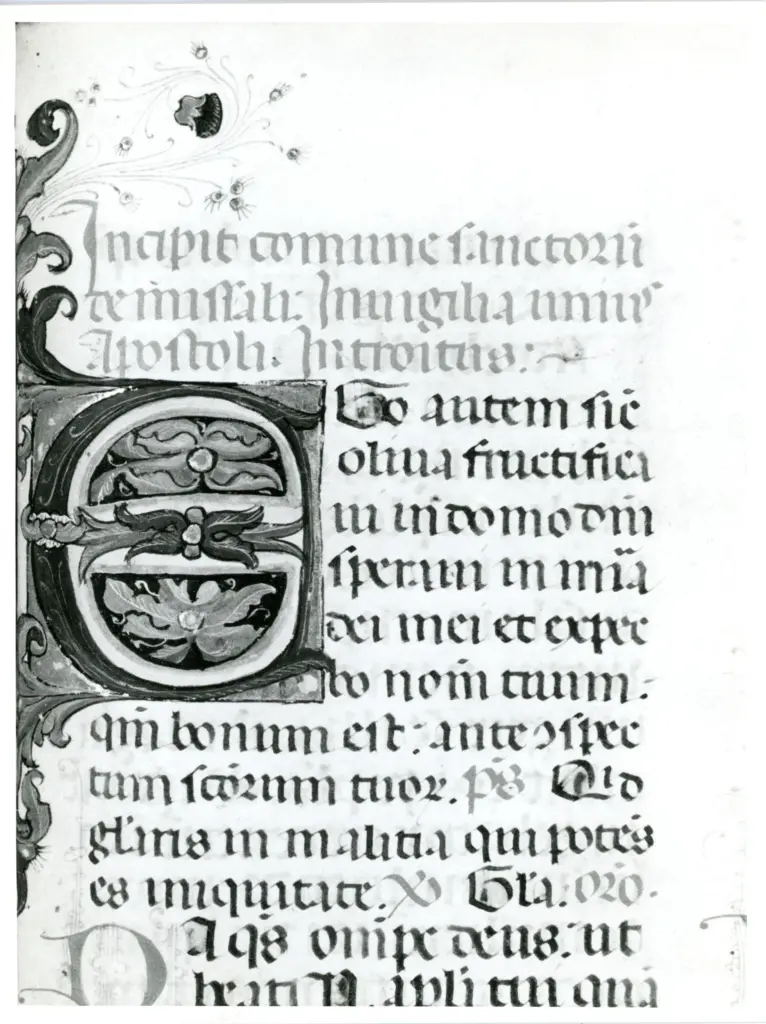 Incipit comune sanctorū
de missali. In uigilia unius
Apostoli. Introitus:
EGo autem sic̄
oliua fructifica
ui in domo dn̄i
speraui in mīa
dei mei et expec
bo nom̄ tuum:
qm̄ bonum est: ante ↄspec
tum sc̄orum tuor. ps̄ Qd
gl̄aris in malitia qui potēs
es iniquitate. Gl̄a. or̄o.
DA qs̄ om̄ipc̄ deus: ut
beati N. apl̄i tui qua